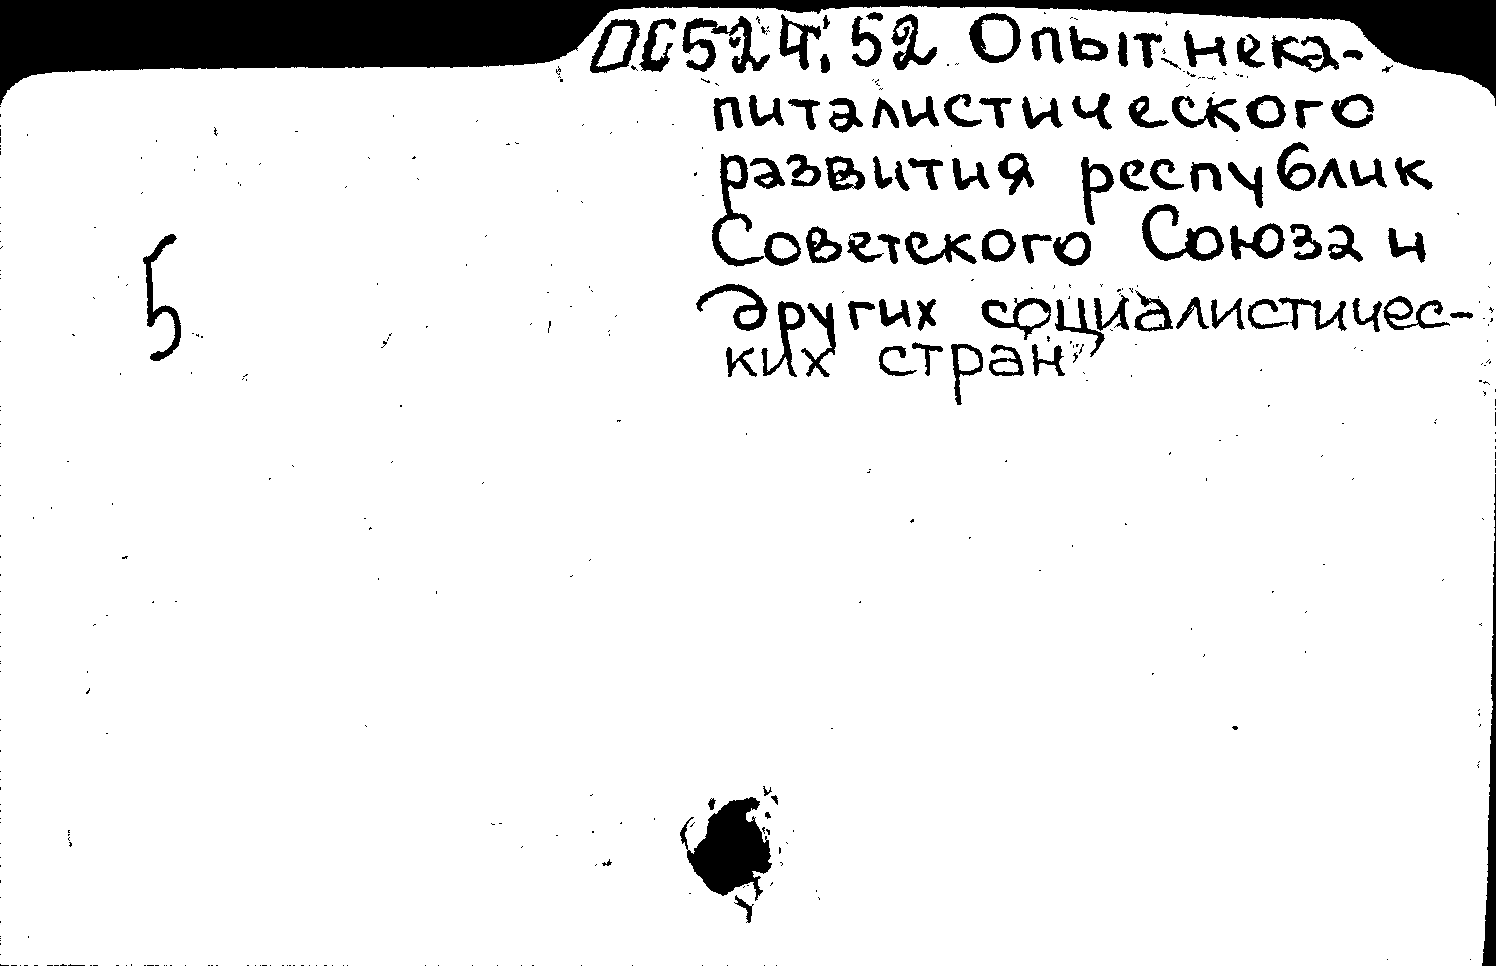 ОС524.52 Опыт нека-
питалистического
развития республик
Советского Союза и
других социалистичес-
ких стран
5